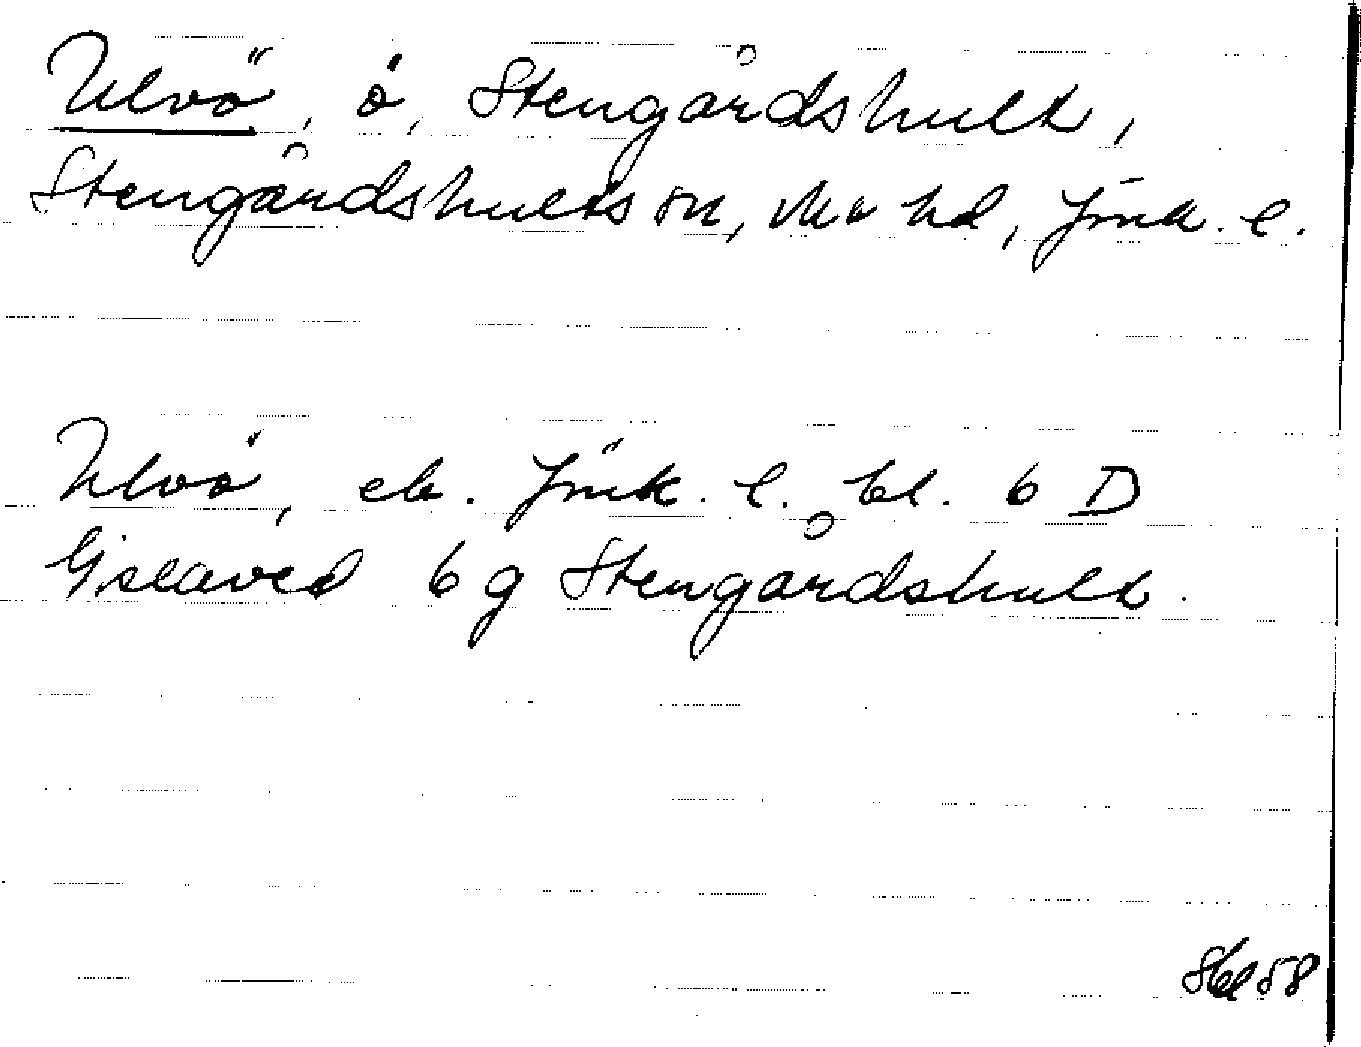 Ulvö, ö, Stengårdshult,
Stengårdshults sn, Mo hd, Jönk. l.
Ulvö, ek. Jönk. l. bl. 6 D
Gislaved 6 g Stengårdshult.
58